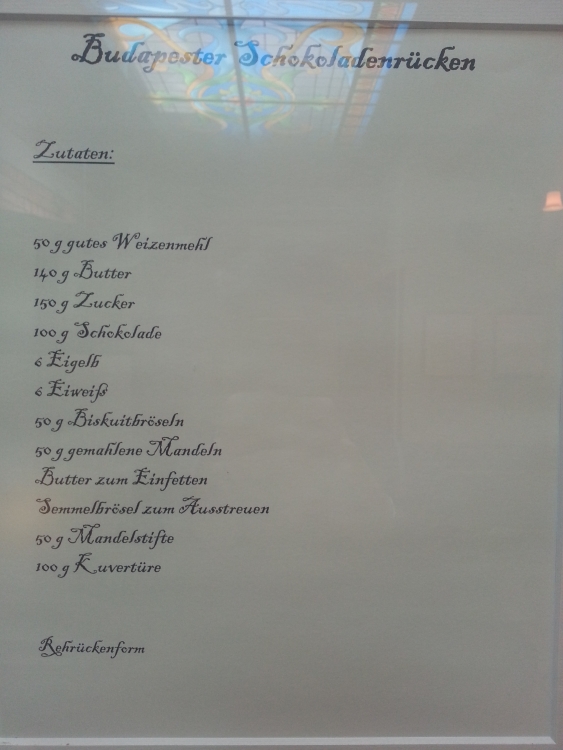 Budapester Schokoladenrücken
Zutaten:
50 g gutes Weizenmehl
140 g Butter
150 g Zucker
100 g Schokolade
6 Eigelb
6 Eiweiß
50 g Biskuitbröseln
50 g gemahlene Mandeln
Butter zum Einfetten
Semmelbrösel zum Ausstreuen
50 g Mandelstifte
100 g Kuvertüre
Rehrückenform